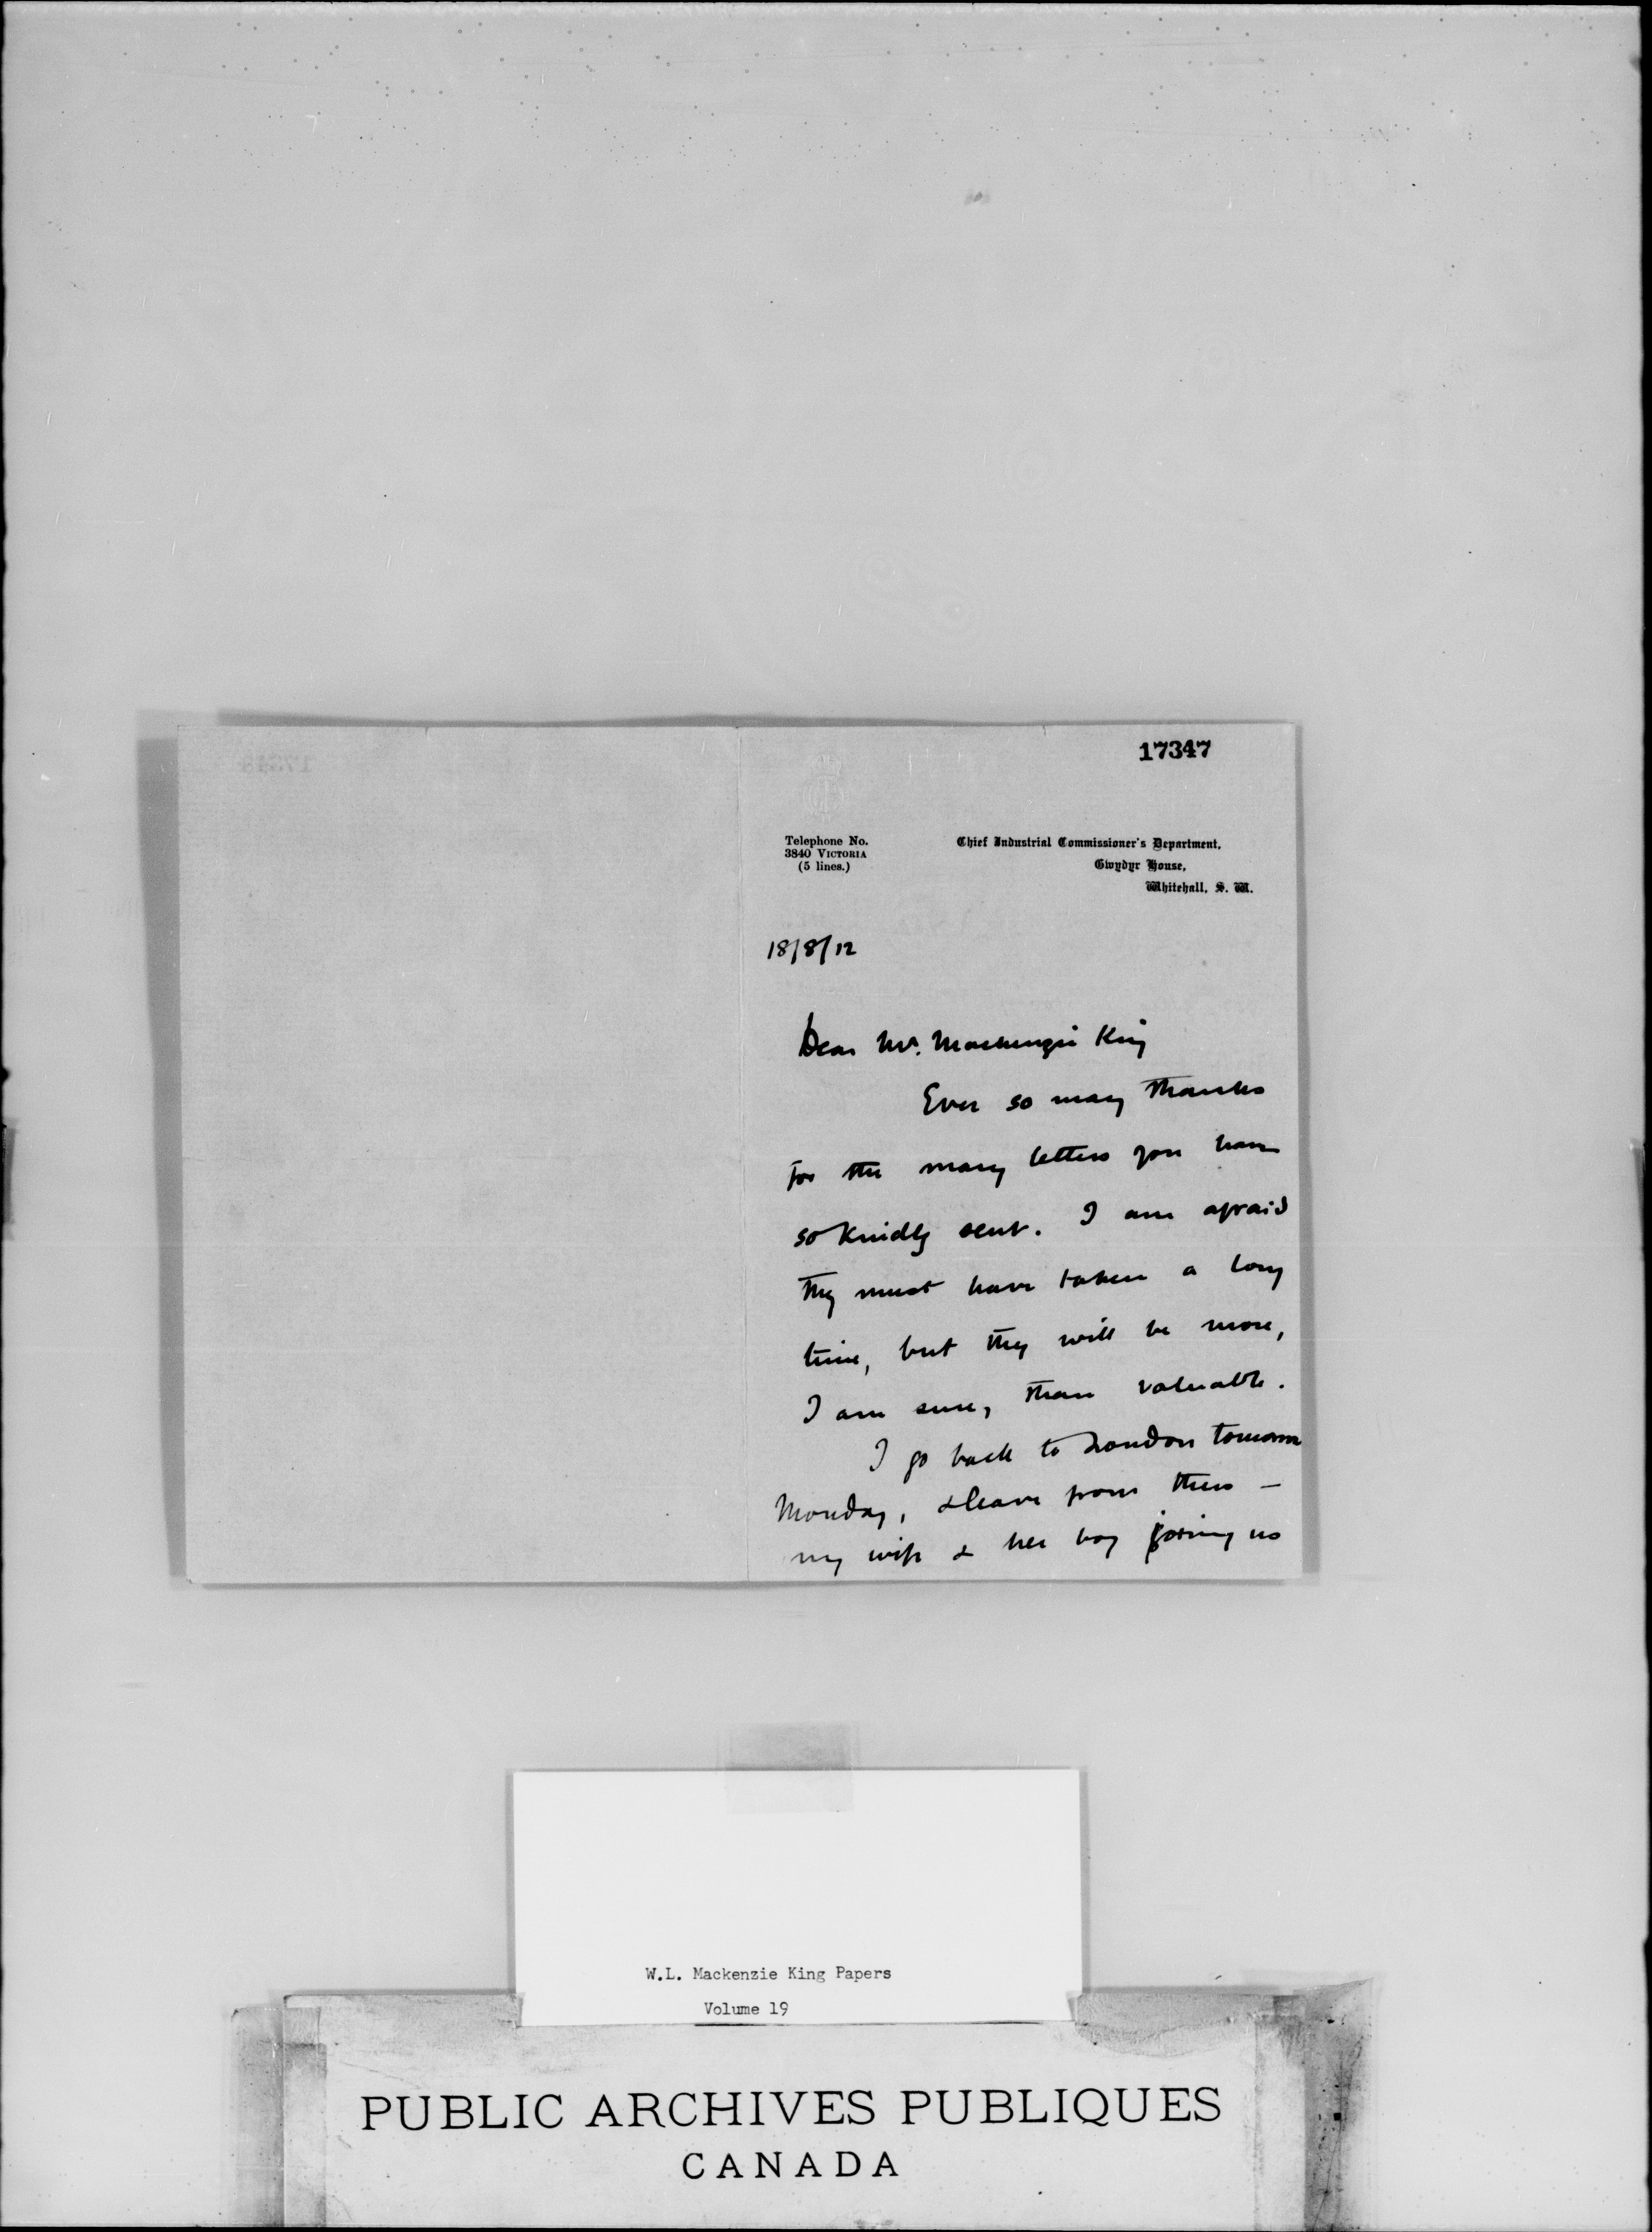 17347
Telephone No.
3840 VICTORIA
(5 lines.)
Chief Industrial Commissioner's Department,
Gwydyr House,
Whitehall, S. W.
18/8/12
Dear Mr. Mackenzie King
Ever so many thanks
for the many letters you have
so kindly sent. I am afraid
they must have taken a long
time, but they will be more,
I am sure, than valuable.
I go back to London tomorrow
Monday, & leave from there —
my wife & her boy joining us
W.L. Mackenzie King Papers
Volume 19
PUBLIC ARCHIVES PUBLIQUES
CANADA